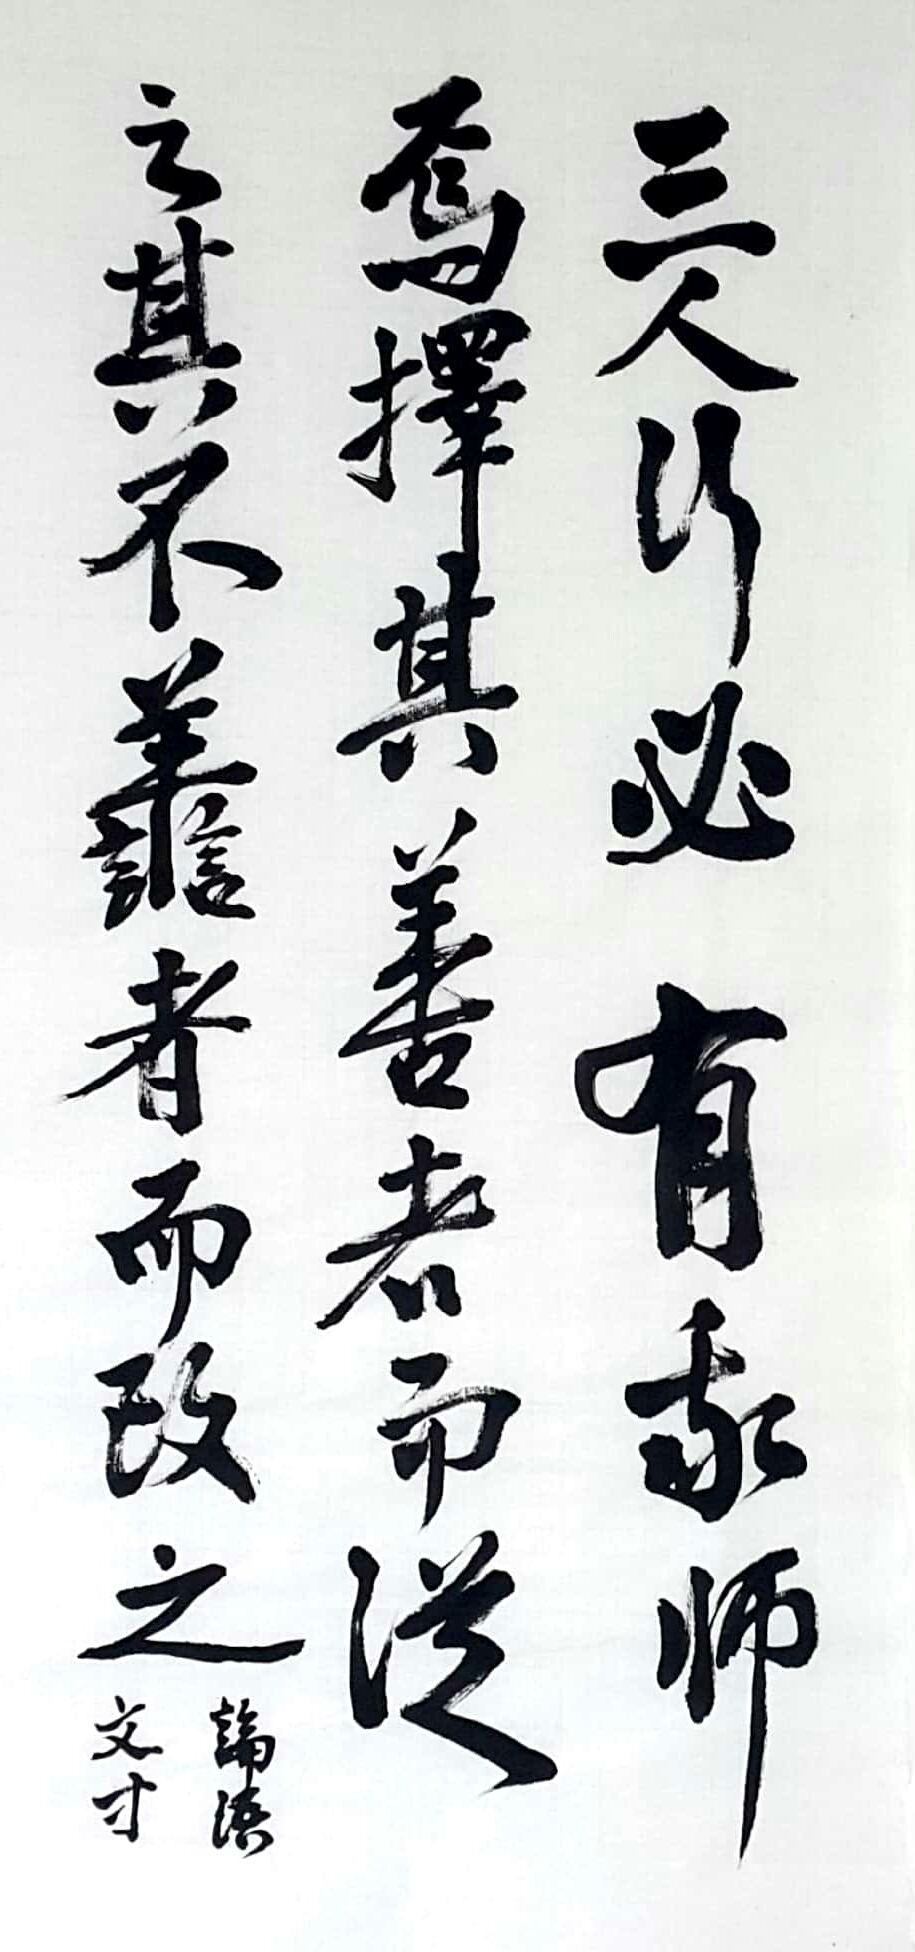 三人行必有我師
焉擇其善者而従
之其不譱者而改之
論語
文寸